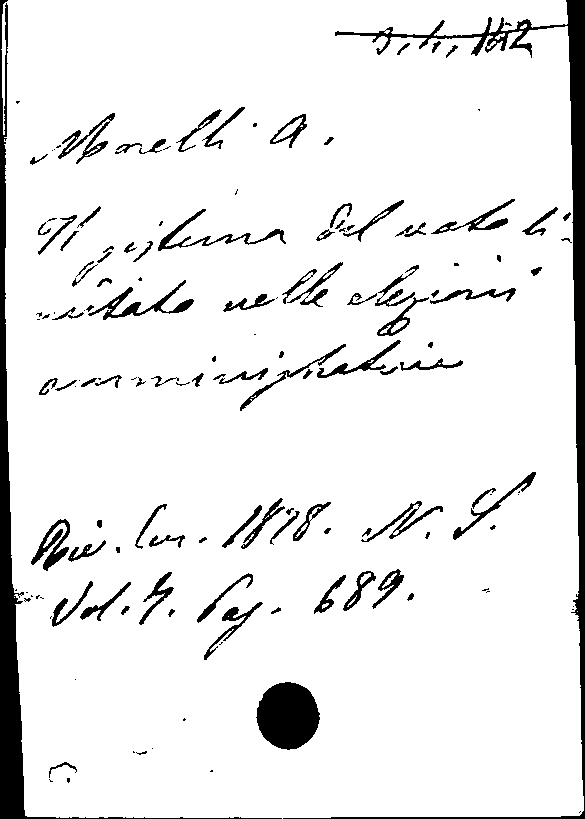 Morelli A.
Il sistema del voto li-
mitato nelle elezioni
amministrative
Riv. Eur. 1878. N. S.
Vol. 7. Pag. 689.